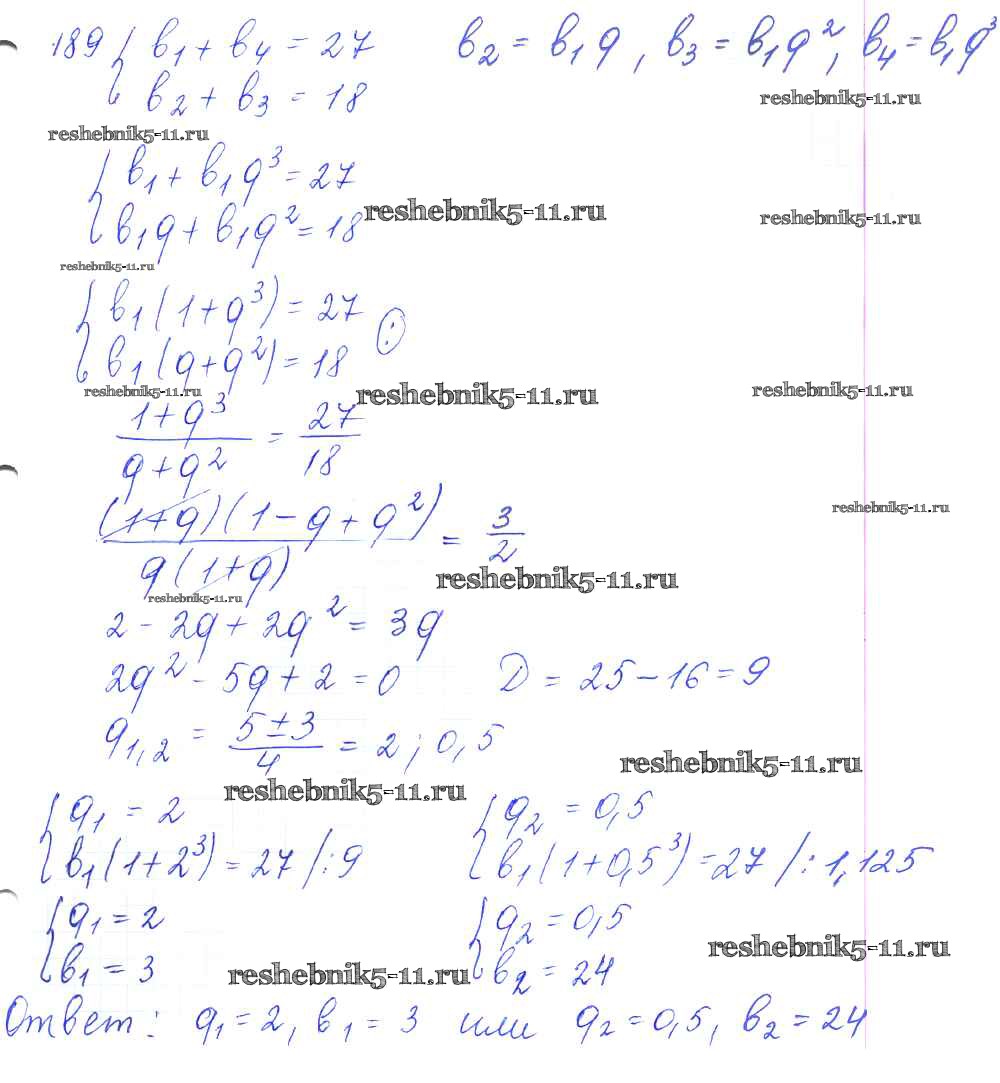 189 { b₁ + b₄ = 27     b₂ = b₁q, b₃ = b₁q², b₄ = b₁q³
b₂ + b₃ = 18
reshebnik5-11.ru
reshebnik5-11.ru
{ b₁ + b₁q³ = 27
b₁q + b₁q² = 18
reshebnik5-11.ru
reshebnik5-11.ru
reshebnik5-11.ru
{ b₁(1+q³) = 27
b₁(q+q²) = 18 (:)
reshebnik5-11.ru
reshebnik5-11.ru
reshebnik5-11.ru
(1+q³)/(q+q²) = 27/18
(1+q)(1-q+q²)/(q(1+q)) = 3/2
reshebnik5-11.ru
reshebnik5-11.ru
reshebnik5-11.ru
2 - 2q + 2q² = 3q
2q² - 5q + 2 = 0     D = 25 - 16 = 9
q₁,₂ = (5±3)/4 = 2; 0,5
reshebnik5-11.ru
reshebnik5-11.ru
{ q₁ = 2     { q₂ = 0,5
b₁(1+2³) = 27 /:9     b₁(1+0,5³) = 27 /:1,125
{ q₁ = 2     { q₂ = 0,5
b₁ = 3     b₂ = 24
reshebnik5-11.ru
reshebnik5-11.ru
Ответ: q₁ = 2, b₁ = 3 или q₂ = 0,5, b₂ = 24